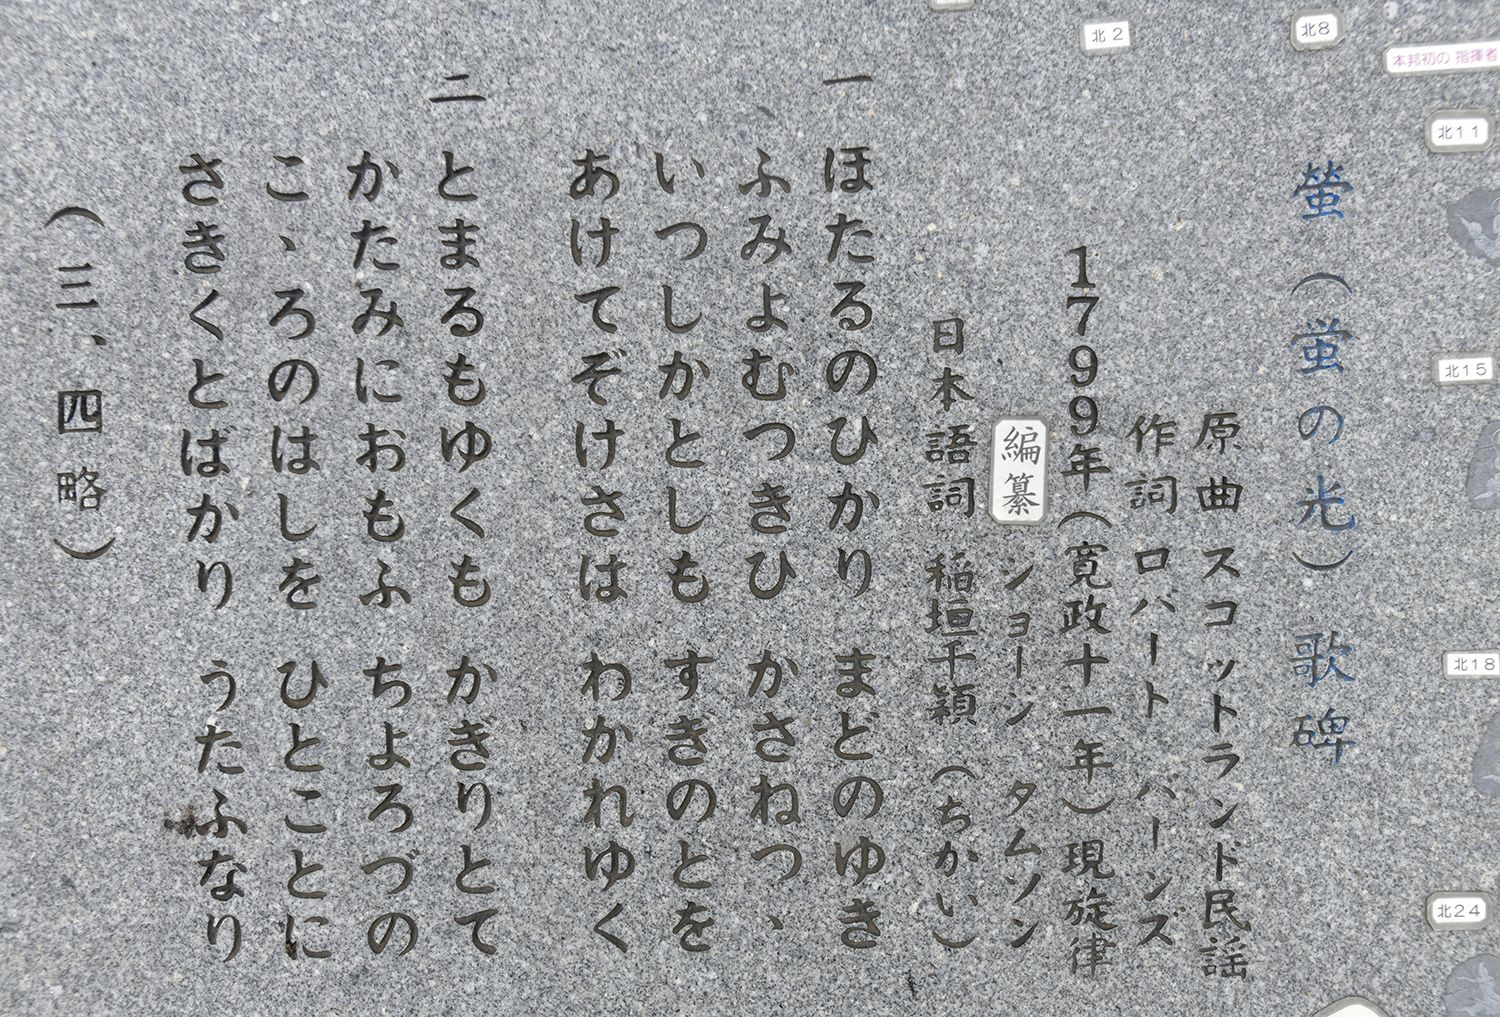 螢(蛍の光)歌碑
原曲 スコットランド民謡
作詞 ロバート バーンズ
1799年(寛政十一年)現旋律
編纂 ジョージ タムソン
日本語詞 稲垣千穎(ちかい)
一 ほたるのひかり まどのゆき
ふみよむつきひ かさねつゝ
いつしかとしも すぎのとを
あけてぞけさは わかれゆく
二 とまるもゆくも かぎりとて
かたみにおもふ ちよろづの
こゝろのはしを ひとことに
さきくとばかり うたふなり
(三、四略)
北2
北8
本邦初の 指揮者
北11
北15
北18
北24